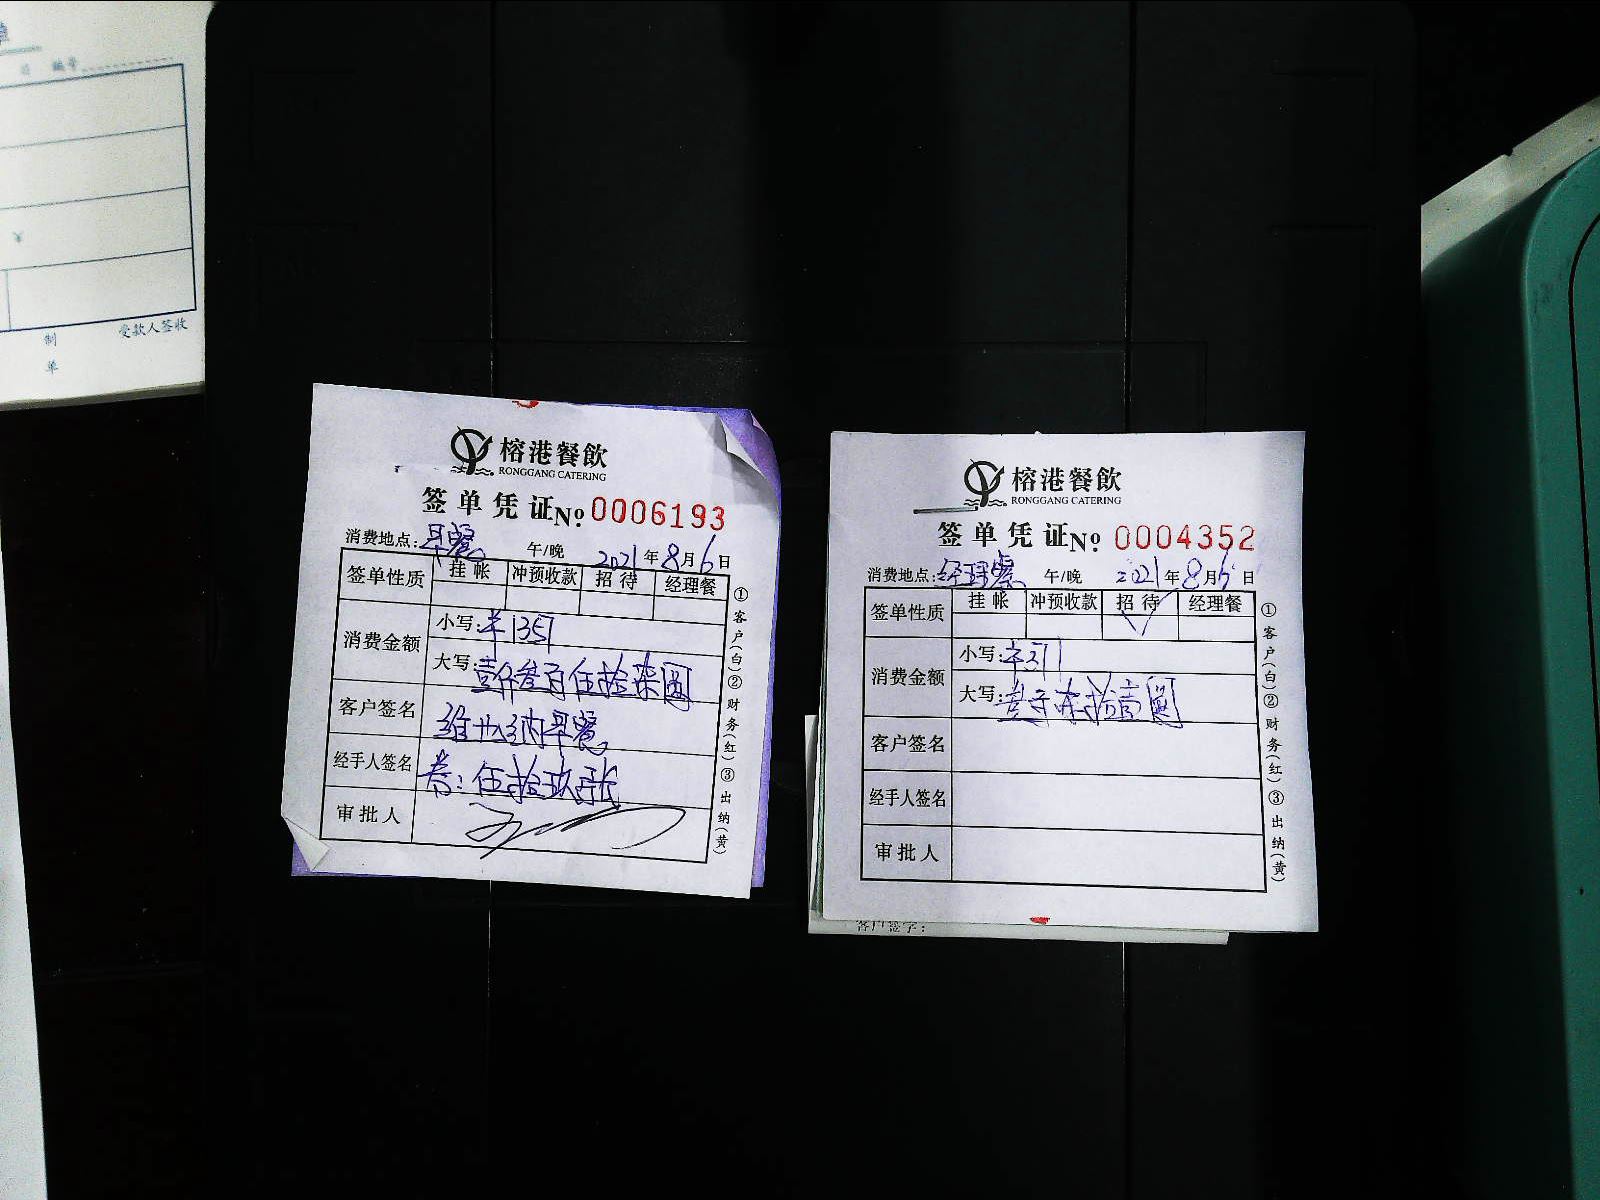 编号
¥
制单
受款人签收
榕港餐飲
RONGGANG CATERING
签单凭证№ 0006193
消费地点:早餐 午/晚 2021年8月6日
签单性质 挂帐 冲预收款 招待 经理餐
消费金额 小写:¥1357
大写:壹仟叁百伍拾柒圆
客户签名 维也纳早餐
经手人签名 券:伍拾玖张
审批人
①客户(白)②财务(红)③出纳(黄)
榕港餐飲
RONGGANG CATERING
签单凭证№ 0004352
消费地点:经理餐 午/晚 2021年8月6日
签单性质 挂帐 冲预收款 招待 经理餐
消费金额 小写:
大写:
客户签名
经手人签名
审批人
①客户(白)②财务(红)③出纳(黄)
客户签字: